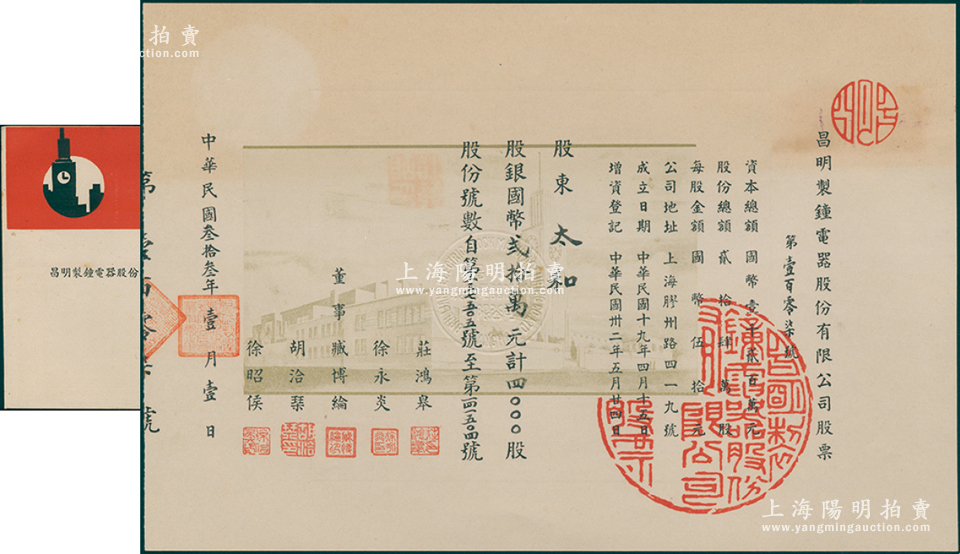 昌明製鐘電器股份有限公司股票
第壹百零柒號
資本總額 國幣壹千貳百萬元
股份總額 貳拾肆萬股
每股金額 國幣伍拾元
公司地址 上海膠州路四一九號
成立日期 中華民國十九年四月十五日
增資登記 中華民國卅二年五月廿四日
股東 太和
股銀國幣貳拾萬元計四〇〇〇股
股份號數自第 號至第 號
莊鴻皋
徐永炎
董事 臧博綸
胡洽琹
徐昭侯
中華民國叁拾叁年壹月壹日
昌明製鐘電器股份
上海陽明拍賣
www.yangmingauction.com
上海陽明拍賣
www.yangmingauction.com
拍賣
auction.com